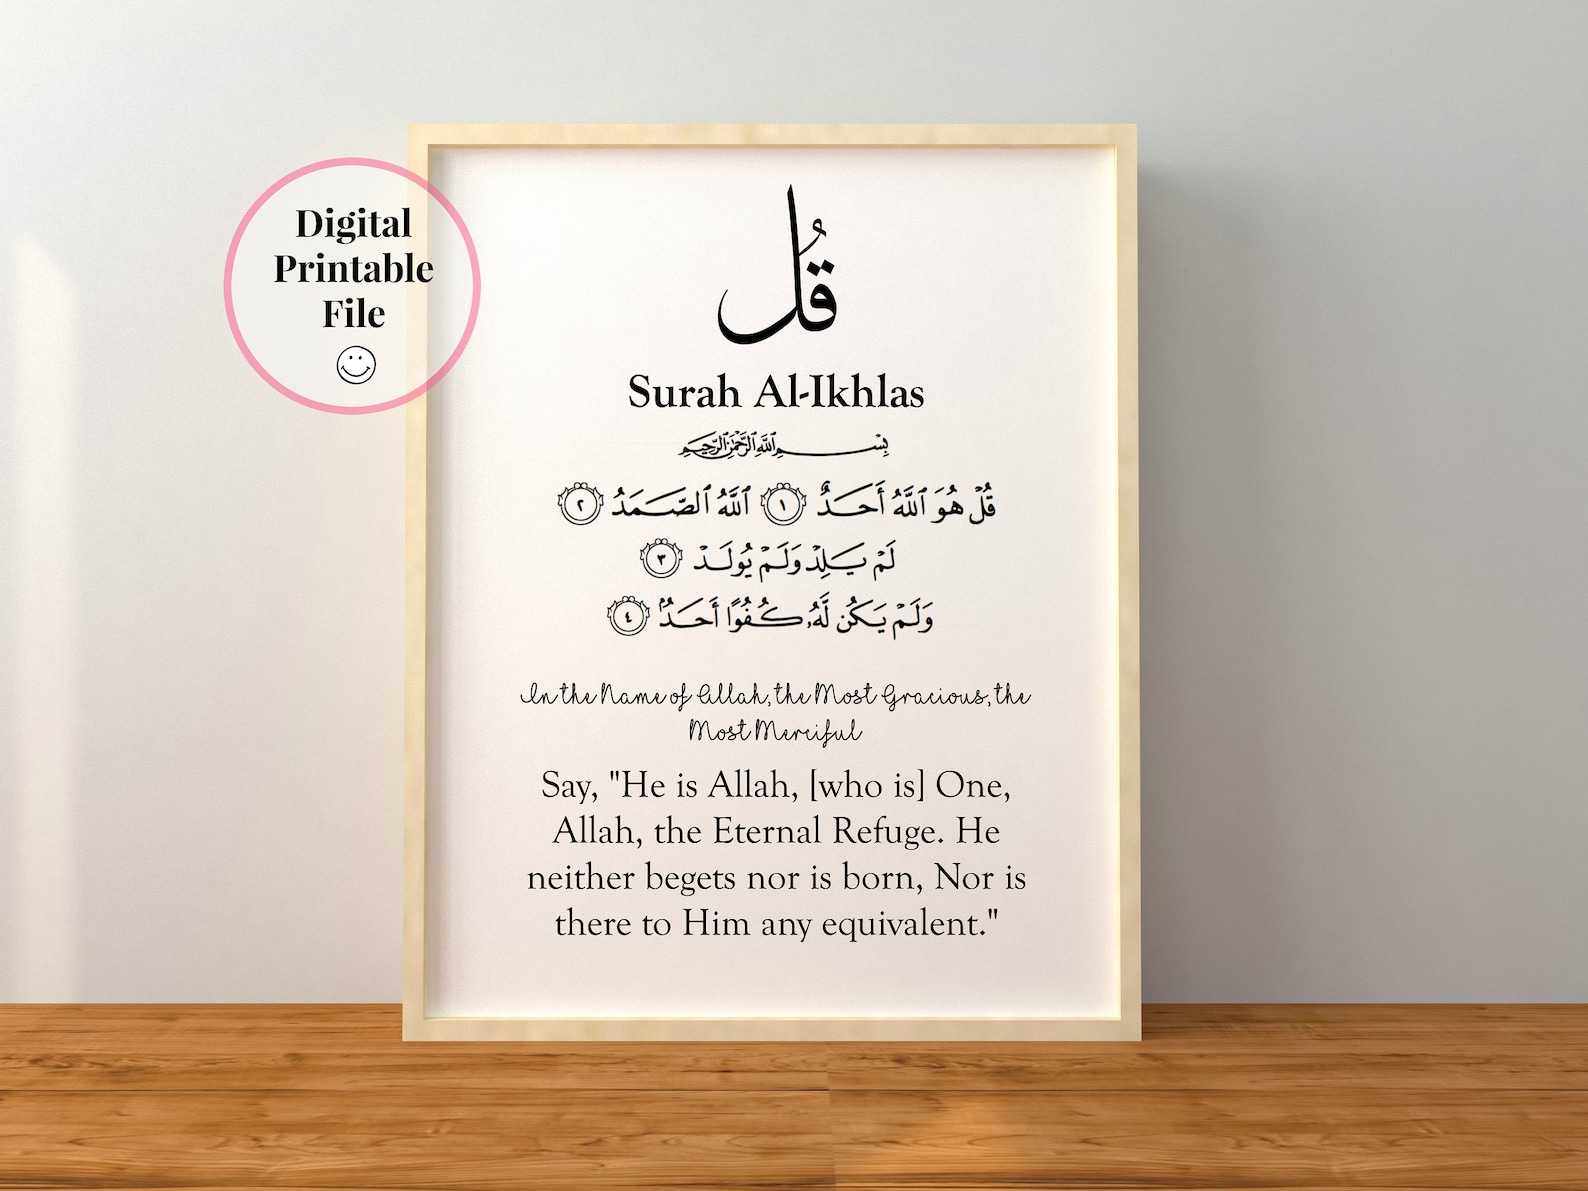 Digital
Printable
File
قُل
Surah Al-Ikhlas
بِسْمِ ٱللَّهِ ٱلرَّحْمَٰنِ ٱلرَّحِيمِ
قُلْ هُوَ ٱللَّهُ أَحَدٌ ١ ٱللَّهُ ٱلصَّمَدُ ٢
لَمْ يَلِدْ وَلَمْ يُولَدْ ٣
وَلَمْ يَكُن لَّهُۥ كُفُوًا أَحَدٌۢ ٤
In the Name of Allah, the Most Gracious, the
Most Merciful
Say, "He is Allah, [who is] One,
Allah, the Eternal Refuge. He
neither begets nor is born, Nor is
there to Him any equivalent."